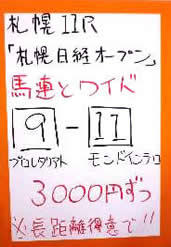 札幌11R
「札幌日経オープン」
馬連とワイド
9-11
プロレタリアト モンドインテロ
3000円ずつ
※長距離得意で!!